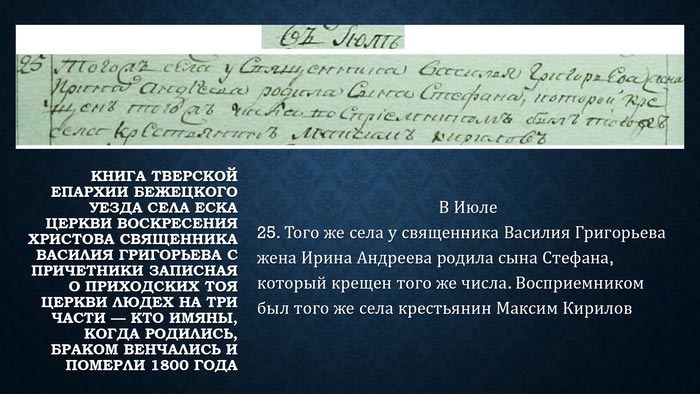 Съ Июлѣ
25 Тогожъ села у Священника Василея Григорьева жена
Ирина Андрѣева родила сына Стефана, которой кре
щенъ тогожъ числа воспрiемникомъ былъ тогожъ
села крестьянинъ Максимъ Кириловъ
КНИГА ТВЕРСКОЙ
ЕПАРХИИ БЕЖЕЦКОГО
УЕЗДА СЕЛА ЕСКА
ЦЕРКВИ ВОСКРЕСЕНИЯ
ХРИСТОВА СВЯЩЕННИКА
ВАСИЛИЯ ГРИГОРЬЕВА С
ПРИЧЕТНИКИ ЗАПИСНАЯ
О ПРИХОДСКИХ ТОЯ
ЦЕРКВИ ЛЮДЕХ НА ТРИ
ЧАСТИ — КТО ИМЯНЫ,
КОГДА РОДИЛИСЬ,
БРАКОМ ВЕНЧАЛИСЬ И
ПОМЕРЛИ 1800 ГОДА
В Июле
25. Того же села у священника Василия Григорьева
жена Ирина Андреева родила сына Стефана,
который крещен того же числа. Восприемником
был того же села крестьянин Максим Кирилов